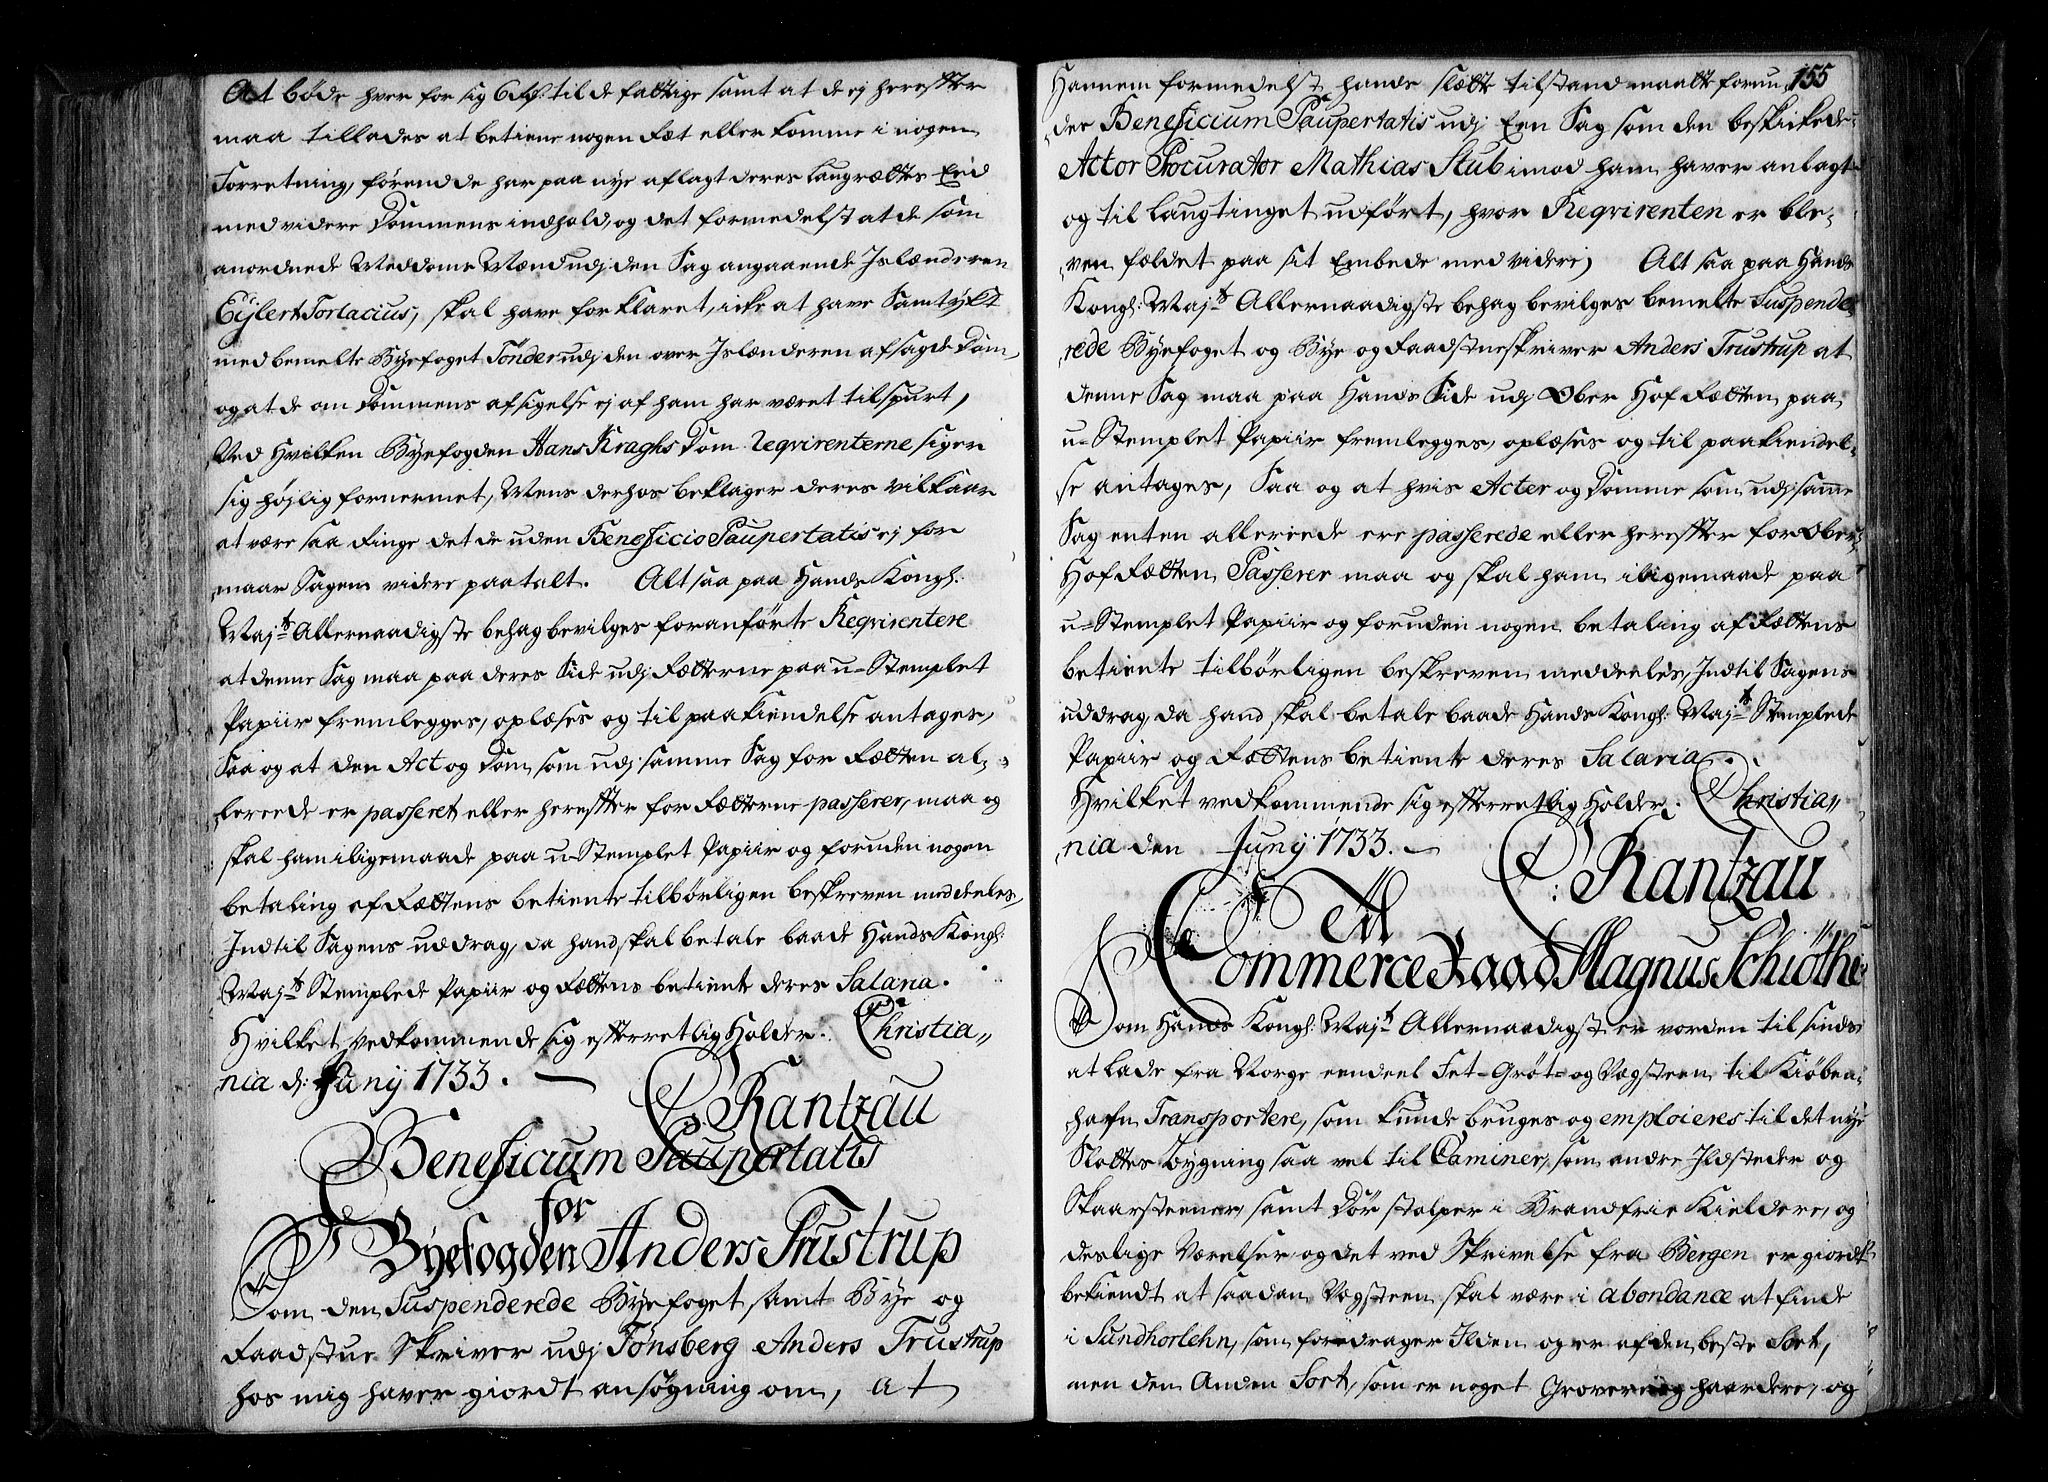 At bøde hver for sig 6 til de fattige samt at de ej herefter
maa tillades at betiene nogen Ræt eller komme i nogen
Forretning, førend de har paa nye aflagt deres Laugrættes Eed
med videre Dommens indhold, og det formedelst at de som
anordnede Meddoms Mænd udj den Sag angaaende Islænderen
Eijlert Torlacius, skal have forklaret, icke at have Samtÿkt
med bemelte Byefoget Tønder udj den over Islænderen afsagde Dom,
og at de om Dommens afsigelse ej af ham har været tilspurt,
Ved Hvilken Byefogden Hans Kraghs Dom Reqvirenterne siger
sig højlig fornermet, Mens derhos beklager deres vilkaar
at være saa Ringe det de uden Beneficio Paupertatis ej for
maar Sagen videre paatalt. Alt saa paa Hands Kongl:
Majts Allernaadigste behag bevilges foranførte Reqvirentere
at denne Sag maa paa deres Side udj Retterne paa u-Stemplet
Papiir fremlegges, oplæses og til paakiendelse antages,
Saa og at den Act og Dom, som udj samme Sag for Retten al-
lereede er passeret eller herefter for Retterne passerer, maa og
skal ham iligemaade paa u-Stemplet Papiir og foruden nogen
betaling af Rættens betiente tilbørligen beskreven meddeeles,
Indtil Sagens uddrag, da hand skal betale baade Hands Kongl:
Majts Stemplede Papiir og Rættens betiente deres Salaria.
Hvilket vedkommende sig efterretlig Holder. Christia„
nia d: Junij 1733.
C: Rantzau
Beneficium Paupertatis
for
Byefogden Anders Trustrup
Som den Suspenderede Byefoget samt Bye og
Raadstue Skriver udj Tønsberg Anders Trustrup
hos mig haver giordt ansøgning om, at
155
Hannem formedelst hands slette tilstand maatte forun-
des Beneficium Paupertatis udj Een Sag som den beskickede
Actor Procurator Mathias Stub imod ham haver anlagt
og til Laugtinget udført, hvor Reqvirenten er ble-
ven fældet paa sit Embede med videre, Alt saa paa Hands
Kongl: Majts Allernaadigste behag bevilges bemelte Suspende-
rede Byefoget og Bye og Raadstueskriver Anders Trustrup at
denne Sag maa paa Hands Side udj Ober Hof Retten paa
u-Stemplet Papiir fremlegges, oplæses og til paakiendel-
se antages, Saa og at hvis Acter og Domme som udj samme
Sag enten allereede ere passerede eller herefter for Ober-
Hof Retten Passerer maa og skal ham iligemaade paa
u-Stemplet Papiir og foruden nogen betaling af Rættens
betiente tilbørligen beskreven meddeeles, Indtil Sagens
uddrag, da hand skal betale baade Hands Kongl: Majts Stemplede
Papiir og Rættens betiente deres Salaria.
Hvilket vedkommende sig efterretlig Holder. Christia„
nia den Junij 1733.
C: Rantzau
Til
Commerce Raad Magnus Schiøthe
Som Hands Kongl: Majt Allernaadigst er vorden til sinds
at lade fra Norge eendeel Fet- Grøt- og Vegsteen til Kiøben-
hafn Transportere, som kunde bruges og emploieres til det nye
Slottes bygning saa vel til Caminer, som andre Ildsteder og
Skaarsteener, samt Dør stolper i Brandfrie Kieldere, og
deslige Værelser og det ved Skrivelse fra Bergen er giordt
bekiendt at saadan Vegsteen skal være i abondance at finde
i Sundhorlehn, som fordrager Ilden og er af den beste Sort,
men den Anden Sort, som er noget Grovere og haardere, og